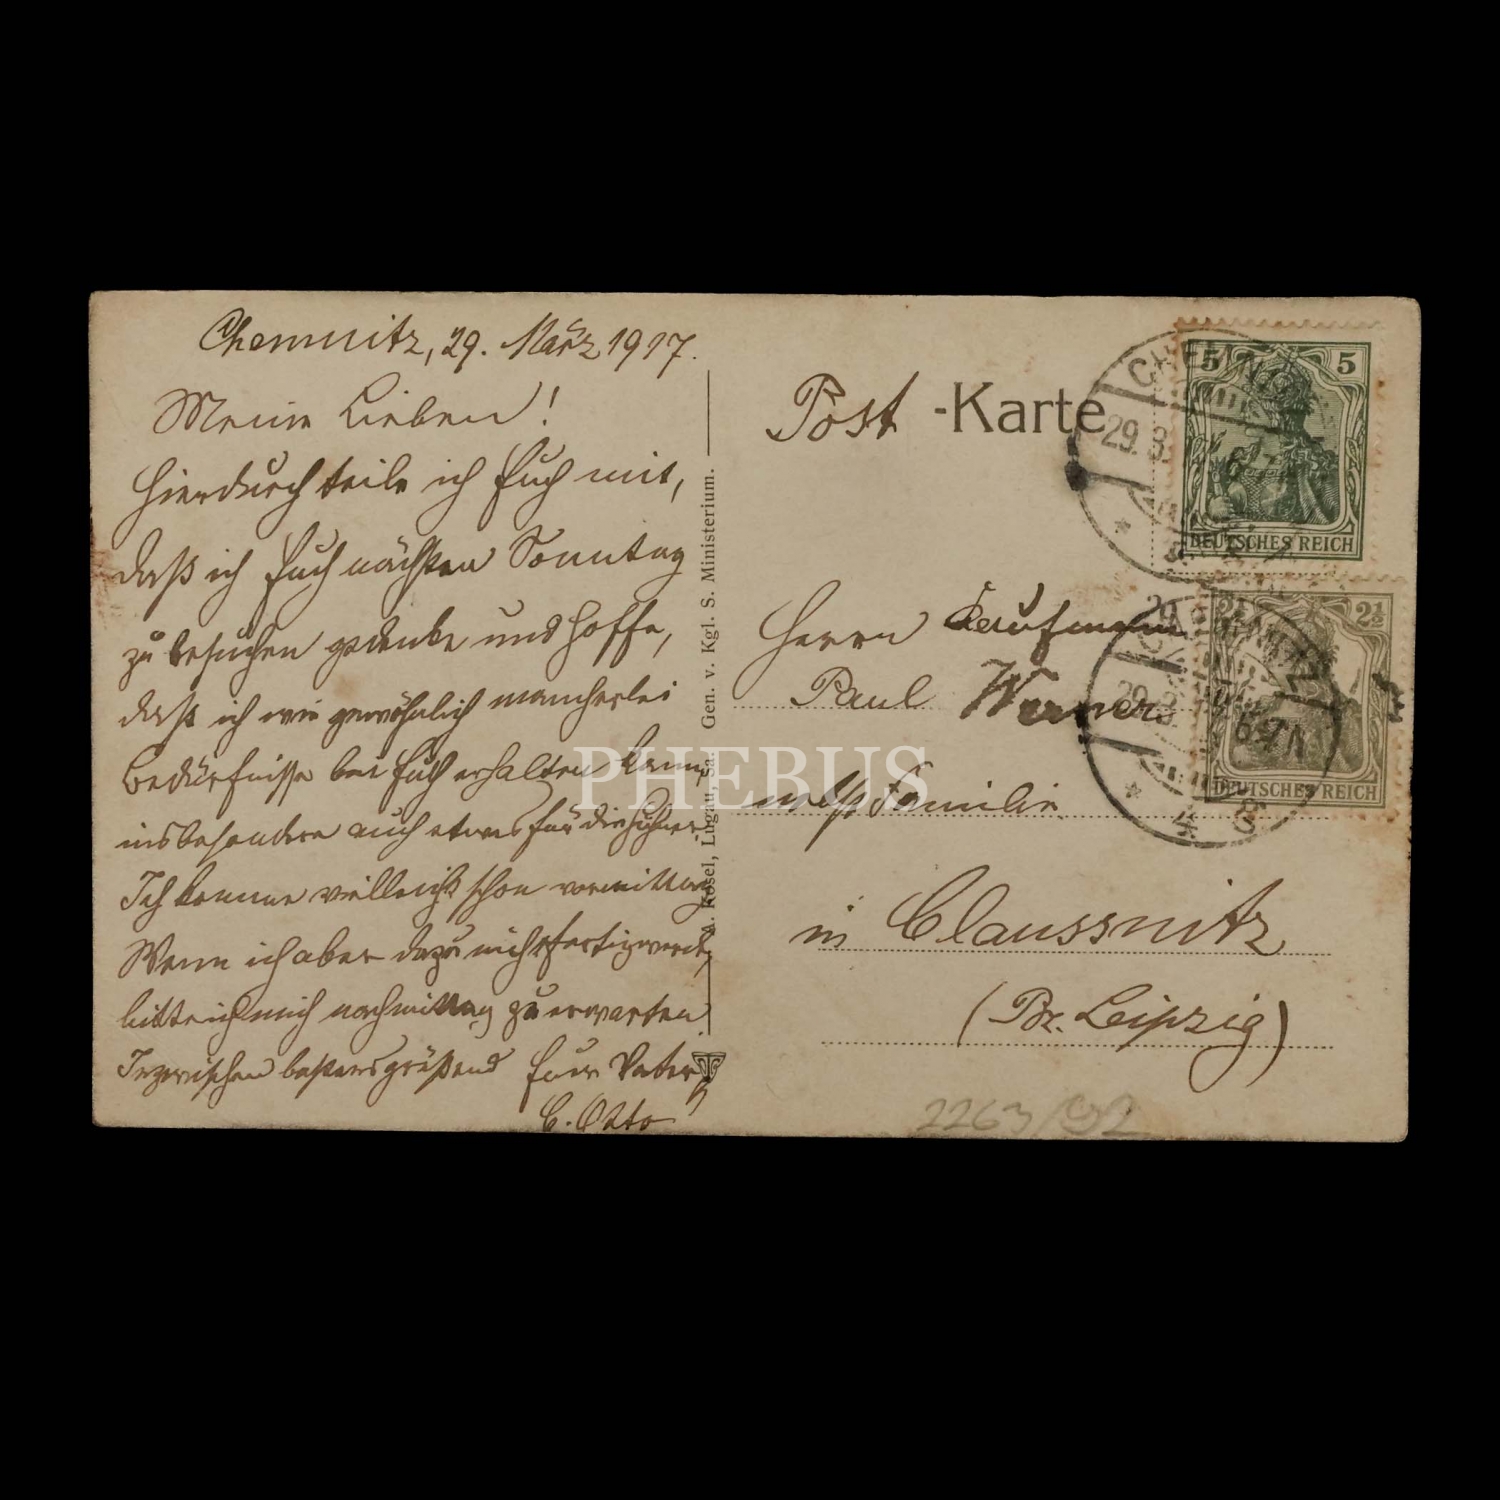 Chemnitz, 29. März 1917.
Meine Lieben!
Hierdurch teile ich Euch mit,
daß ich Euch nächsten Sonntag
zu besuchen gedenke und hoffe,
daß ich wie gewöhnlich mancherlei
Bedürfnisse bei Euch erhalten kann,
insbesondere auch etwas für die Hühner.
Ich komme vielleicht schon vormittag
Wenn ich aber dazu nicht fertig werde,
bitte ich mich nachmittag zu erwarten
Inzwischen bestens grüßend Euer Vater
C. Otto
A. Kösel, Lugau, Sa. Gen. v. Kgl. S. Ministerium.
Post-Karte
Herrn Kaufmann
Paul Werner
nebst Familie
in Claussnitz
(Bz. Leipzig)
2263/92
5 5
DEUTSCHES REICH
CHEMNITZ
29.3.
2½ 2½
DEUTSCHES REICH
CHEMNITZ
29.3.17 6-7N
* 4 8
PHEBUS